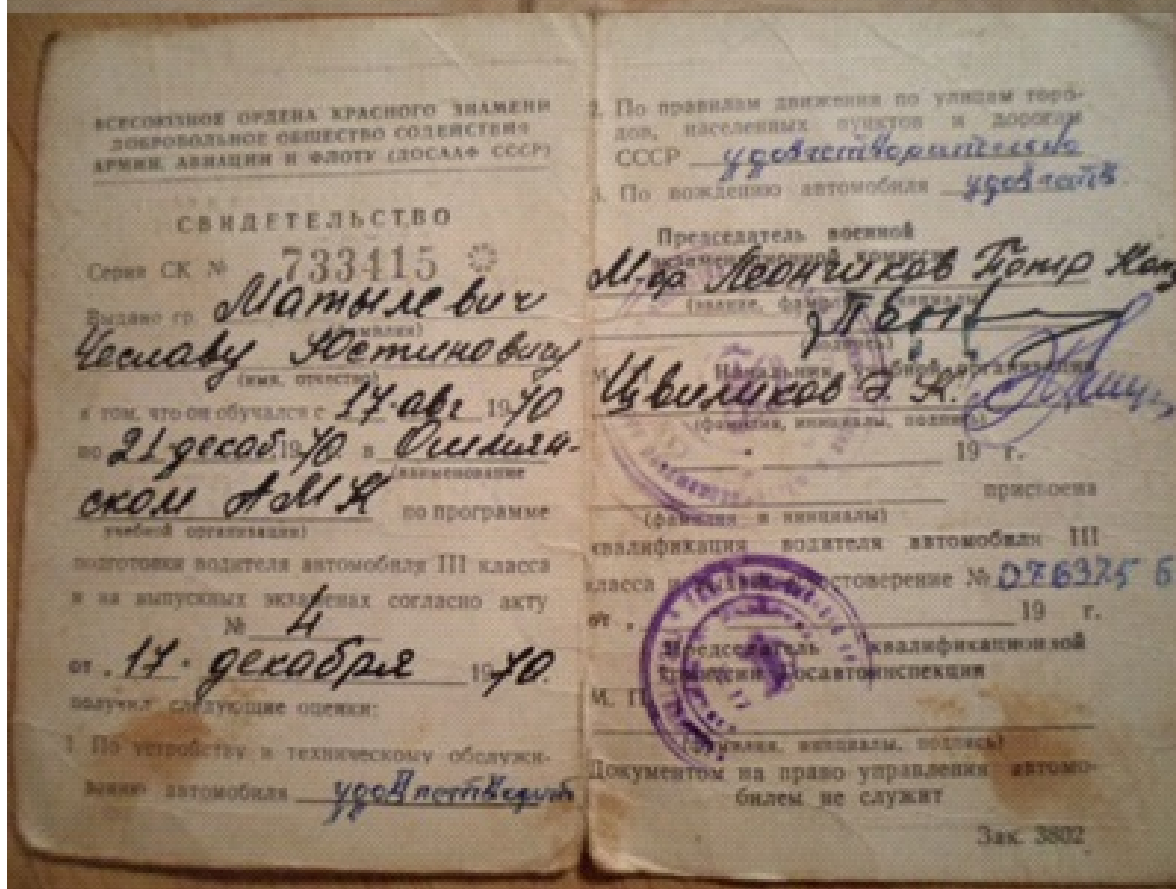 ВСЕСОЮЗНОЕ ОРДЕНА КРАСНОГО ЗНАМЕНИ
ДОБРОВОЛЬНОЕ ОБЩЕСТВО СОДЕЙСТВИЯ
АРМИИ, АВИАЦИИ И ФЛОТУ (ДОСААФ СССР)
СВИДЕТЕЛЬСТВО
Серия СК № 733415
Выдано гр. Матылевич
(фамилия)
Чеславу Юстиновичу
(имя, отчество)
в том, что он обучался с 17 авг 1970
по 21 декаб. 1970 в Ошмян-
(наименование
ском АМК по программе
учебной организации)
подготовки водителя автомобиля III класса
и на выпускных экзаменах согласно акту
№ 4
от „17" декабря 1970.
получил следующие оценки:
1. По устройству и техническому обслужи-
ванию автомобиля удовлетворит
2. По правилам движения по улицам горо-
дов, населенных пунктов и дорогам
СССР удовлетворительно
3. По вождению автомобиля удовлетв.
Председатель военной
экзаменационной комиссии
М-ор Леончиков Петр
(звание, фамилия, инициалы)
(подпись)
М. П. Начальник учебной организации
Цвиликов Э. К.
(фамилия, инициалы, подпись)
19 г.
присвоена
(фамилия и инициалы)
квалификация водителя автомобиля III
класса и выдано удостоверение № 076375
от „ 19 г.
Председатель квалификационной
комиссии Госавтоинспекции
М. П.
(фамилия, инициалы, подпись)
Документом на право управления автомо-
билем не служит
Зак. 3802